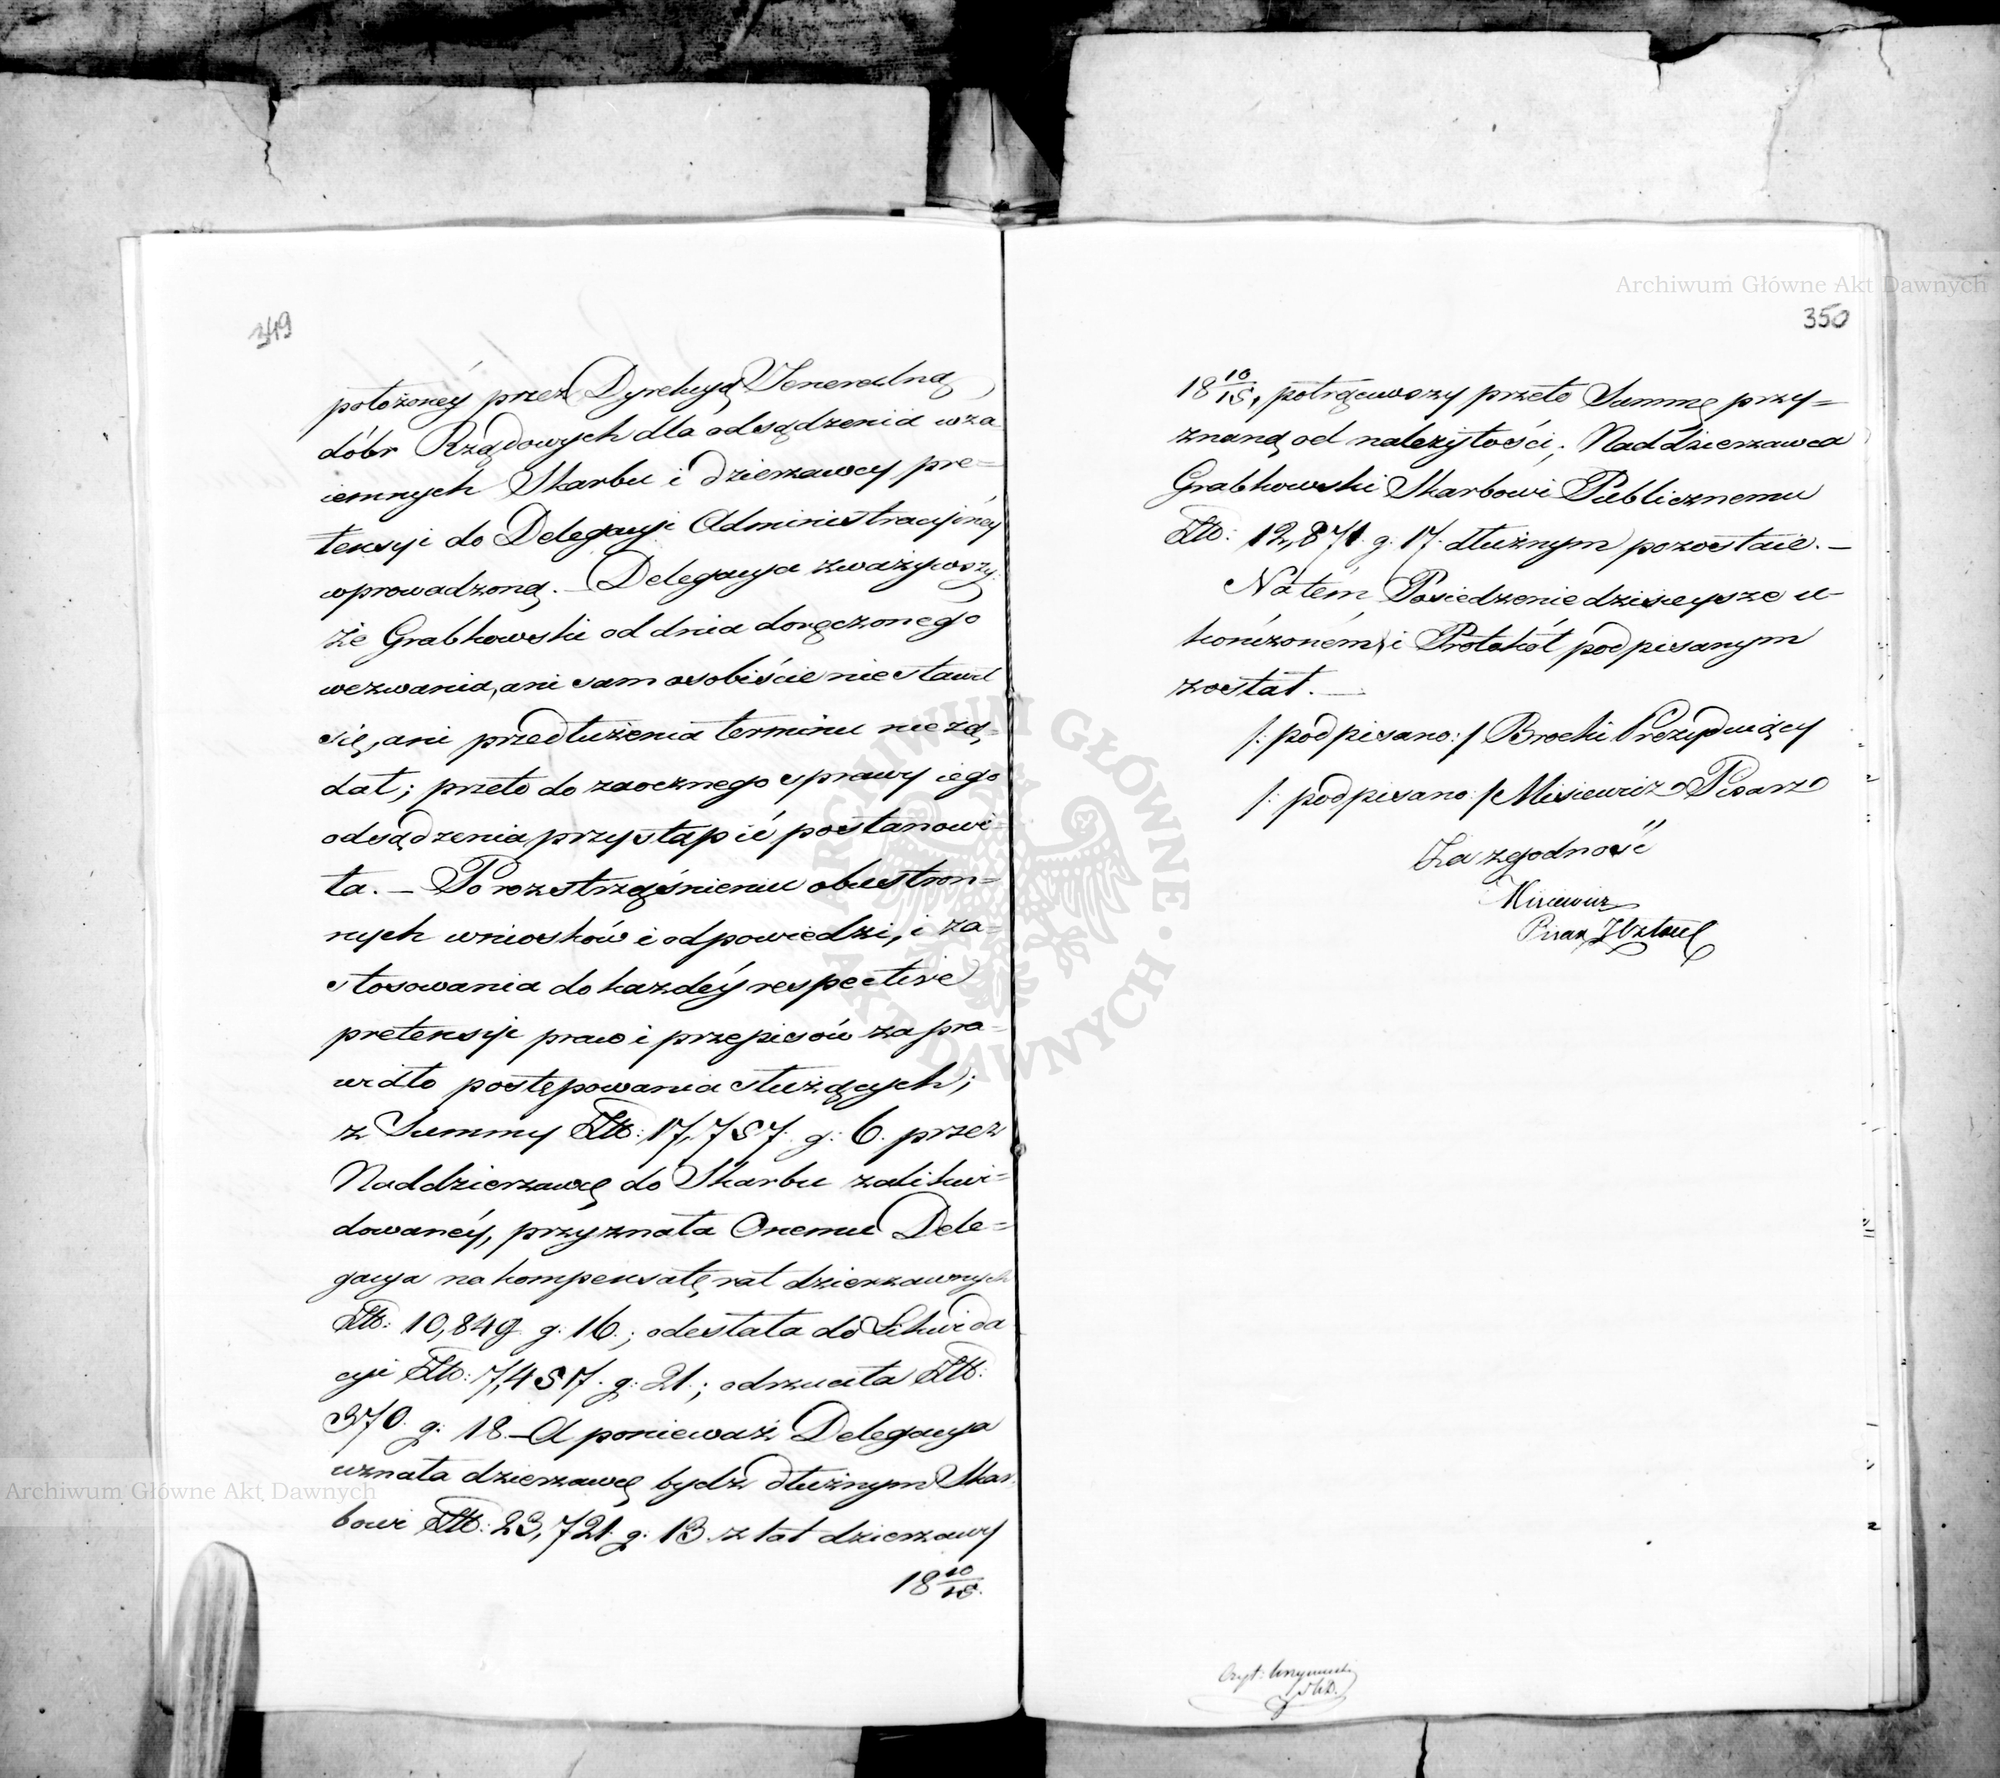 349
położonéy przez Dyrekcyą Jeneralną
dóbr Rządowych dla odsądzenia wza
iemnych Skarbu i dzierżawcy pre=
tensyi do Delegacyi Administracyinéy
wprowadzoną. — Delegacya zważywszy
że Grabkowski od dnia doręczonego
wezwania, ani sam osobiście nie stawił
się, ani przedłużenia terminu nie żą,
dał; przeto do zaocznego sprawy iego
odsądzenia przystąpić postanowi=
ła. — Po rozstrząśnieniu obustron=
nych wniosków i odpowiedzi, i za=
stosowania do każdéy respective
pretensyi praw i przepisów za pra=
widło postępowania służących;
z Summy Złtb: 17,757. g: 6. przez
Naddzierżawcę do Skarbu zalikwi=
dowanéy, przyznała Onemu Dele=
gacya na kompensatę rat dzierżawnych
Złtb: 10,849 g: 16.; odesłała do Likwida
cyi Złtb: 7,457. g: 21.; odrzuciła Złtb:
370. g: 18. — A ponieważ Delegacya
uznała dzierżawcę bydź dłużnym Skar=
bowi Złtb: 23,721. g: 13. z lat dzierżawy
18 10/15.
350
18 10/15, potrąciwszy przeto Summę przy=
znaną od należytości; Naddzierżawca
Grabkowski Skarbowi Publicznemu
Złtb: 12,871. g: 17. dłużnym pozostaie. —
Na tém Posiedzenie dzisieysze u=
kończoném, i Protokół podpisanym
został. —
/: podpisano: / Brocki Prezyduiący
/: podpisano: / Misiewicz Pisarz
Za zgodność
Misiewicz
Pisarz
Czyt:
Archiwum Główne Akt Dawnych
Archiwum Główne Akt Dawnych
ARCHIWUM GŁÓWNE · AKT DAWNYCH ·